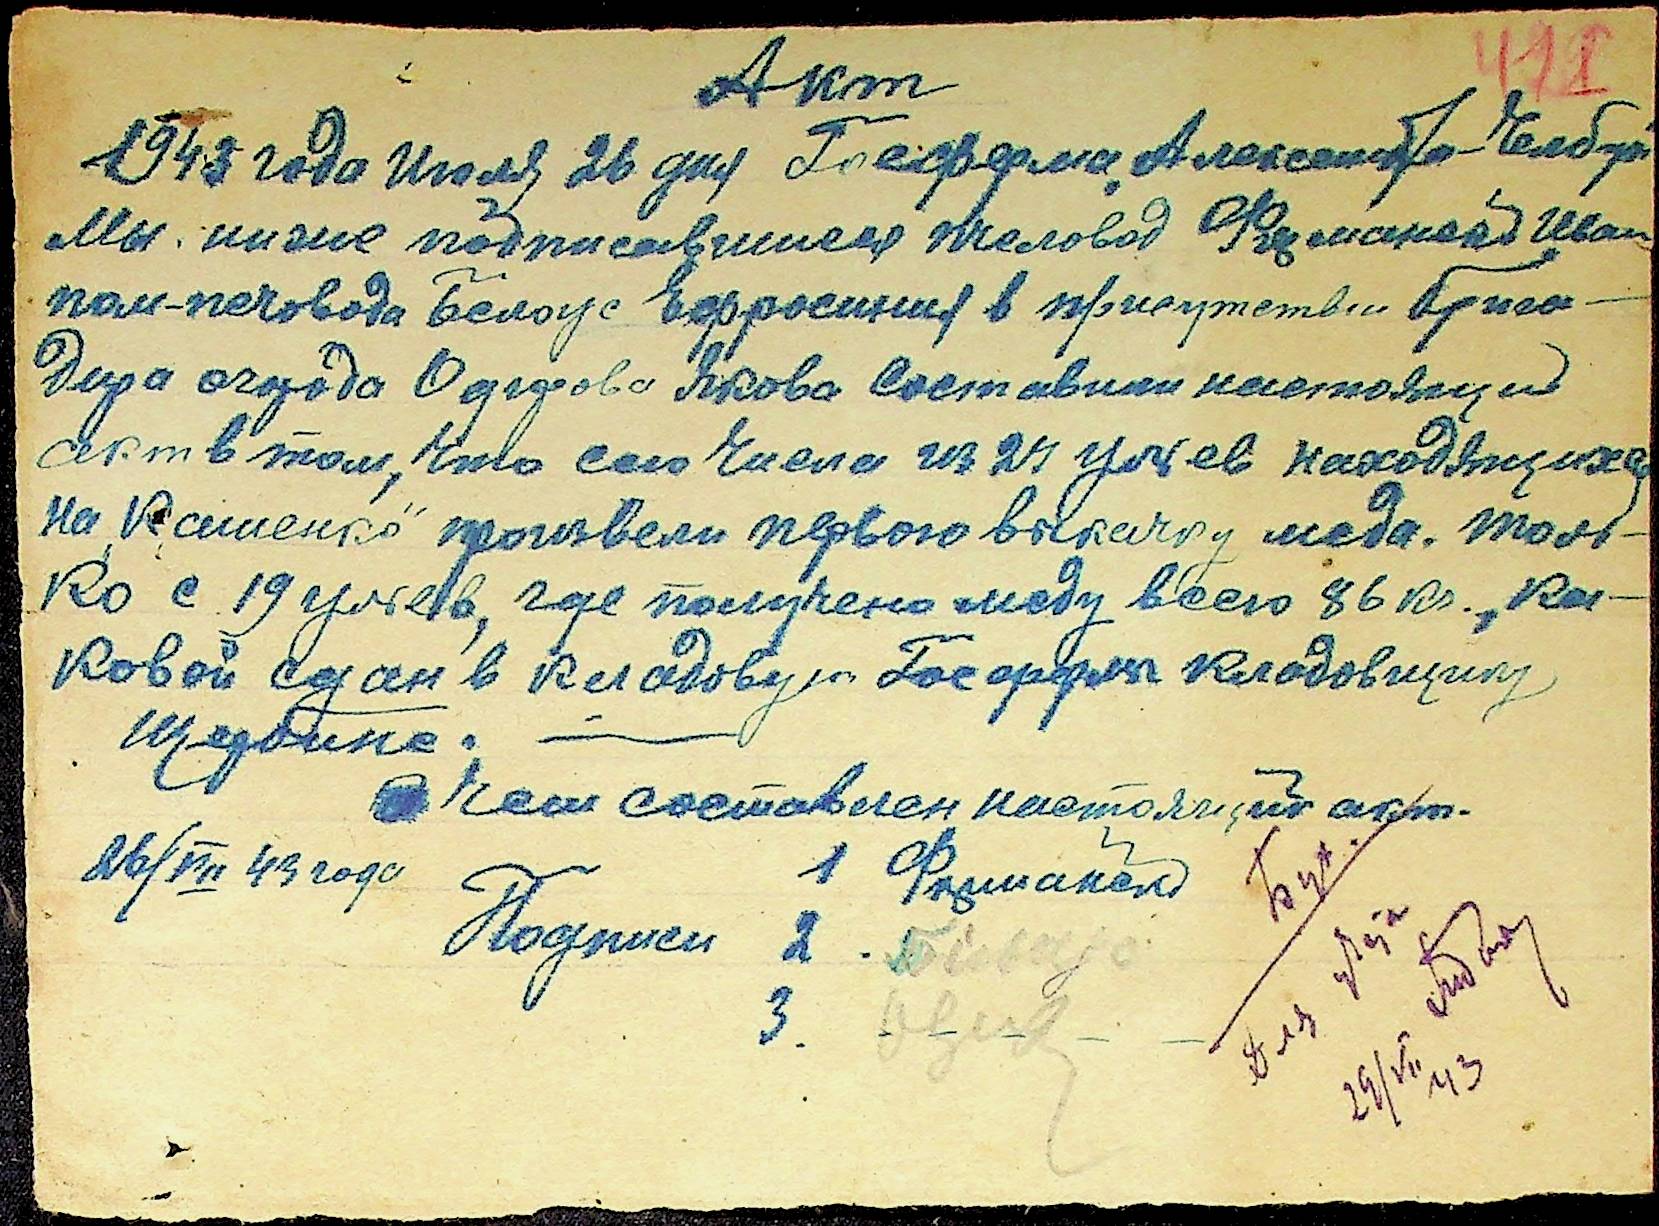 491
Акт
1943 года Июля 26 дня Госферма Александро-
Мы ниже подписавшиеся пчеловод Фурманский Иван
пом-печовода Белоус Ефросиния в присутствии брига-
дира огорода Одерова Якова составили настоящий
акт в том, что сего числа из 27 ульев находящихся
на „Кашенко" произвели первою выкачку меда. толь-
ко с 19 ульев, где получено меду всего 86 кг., ка-
ковой сдан в кладовую Госфермы кладовщику
Щербине.
О чем составлен настоящий акт.
26/VII 43 года
Подписи 1 Фурманский
2. Білоус
3.
Бух.
Для
29/VII 43